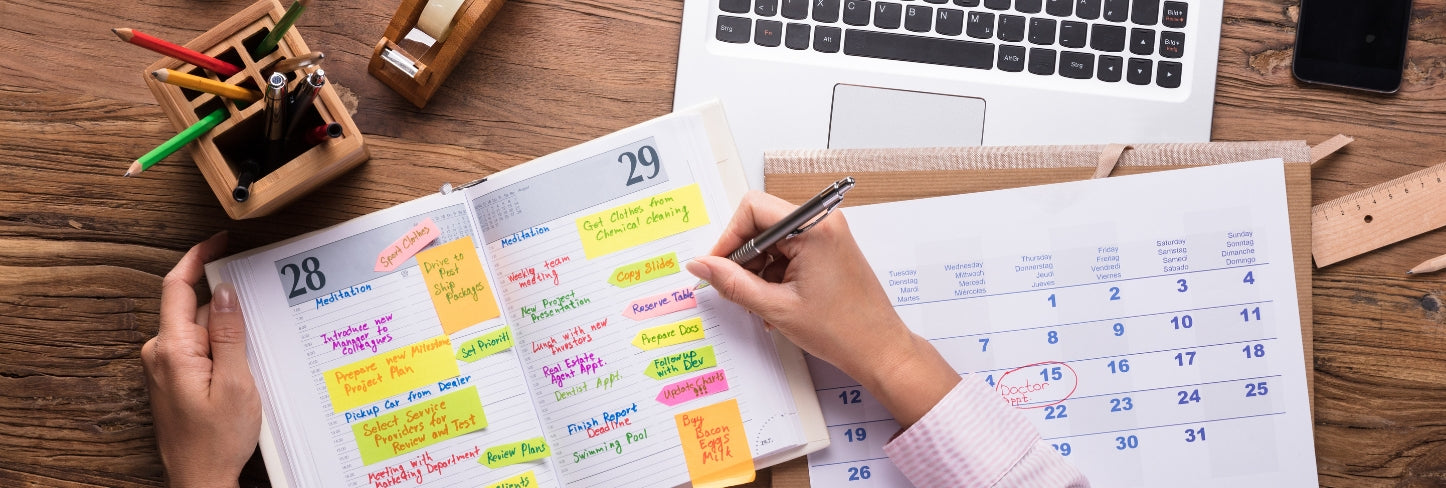 Strg
Fn
Alt
X
C
V
B
N
M
Alt Gr
Strg
Bild
Bild
28
Sport Clothes
Meditation
Drive to
Post
Ship
Packages
Introduce new
Manager to
colleagues
Set Prioriti
Prepare new Milestone
Project Plan
Pickup Car from Dealer
Select Service
Providers for
Review and Test
Review Plans
Meeting with
Marketing Department
Clients
29
Meditation
Get Clothes from
Chemical cleaning
Weekly team
meeting
Copy Slides
New Project
Presentation
Reserve Table
Lunch with new
Investors
Prepare Docs
Real Estate
Agent Appt.
Follow up
with Dev
Dentist Appt.
Update Charts
!!!
Finish Report
Deadline
Swimming Pool
Buy
Bacon
Eggs
Milk
Tuesday Wednesday Thursday Friday Saturday Sunday
Dienstag Mittwoch Donnerstag Freitag Samstag Sonntag
Mardi Mercredi Jeudi Vendredi Samedi Dimanche
Martes Miércoles Jueves Viernes Sábado Domingo
1 2 3 4
7 8 9 10 11
12 15 16 17 18
Doctor
Appt.
19 22 23 24 25
26 29 30 31
1 2 3 4 5 6 7